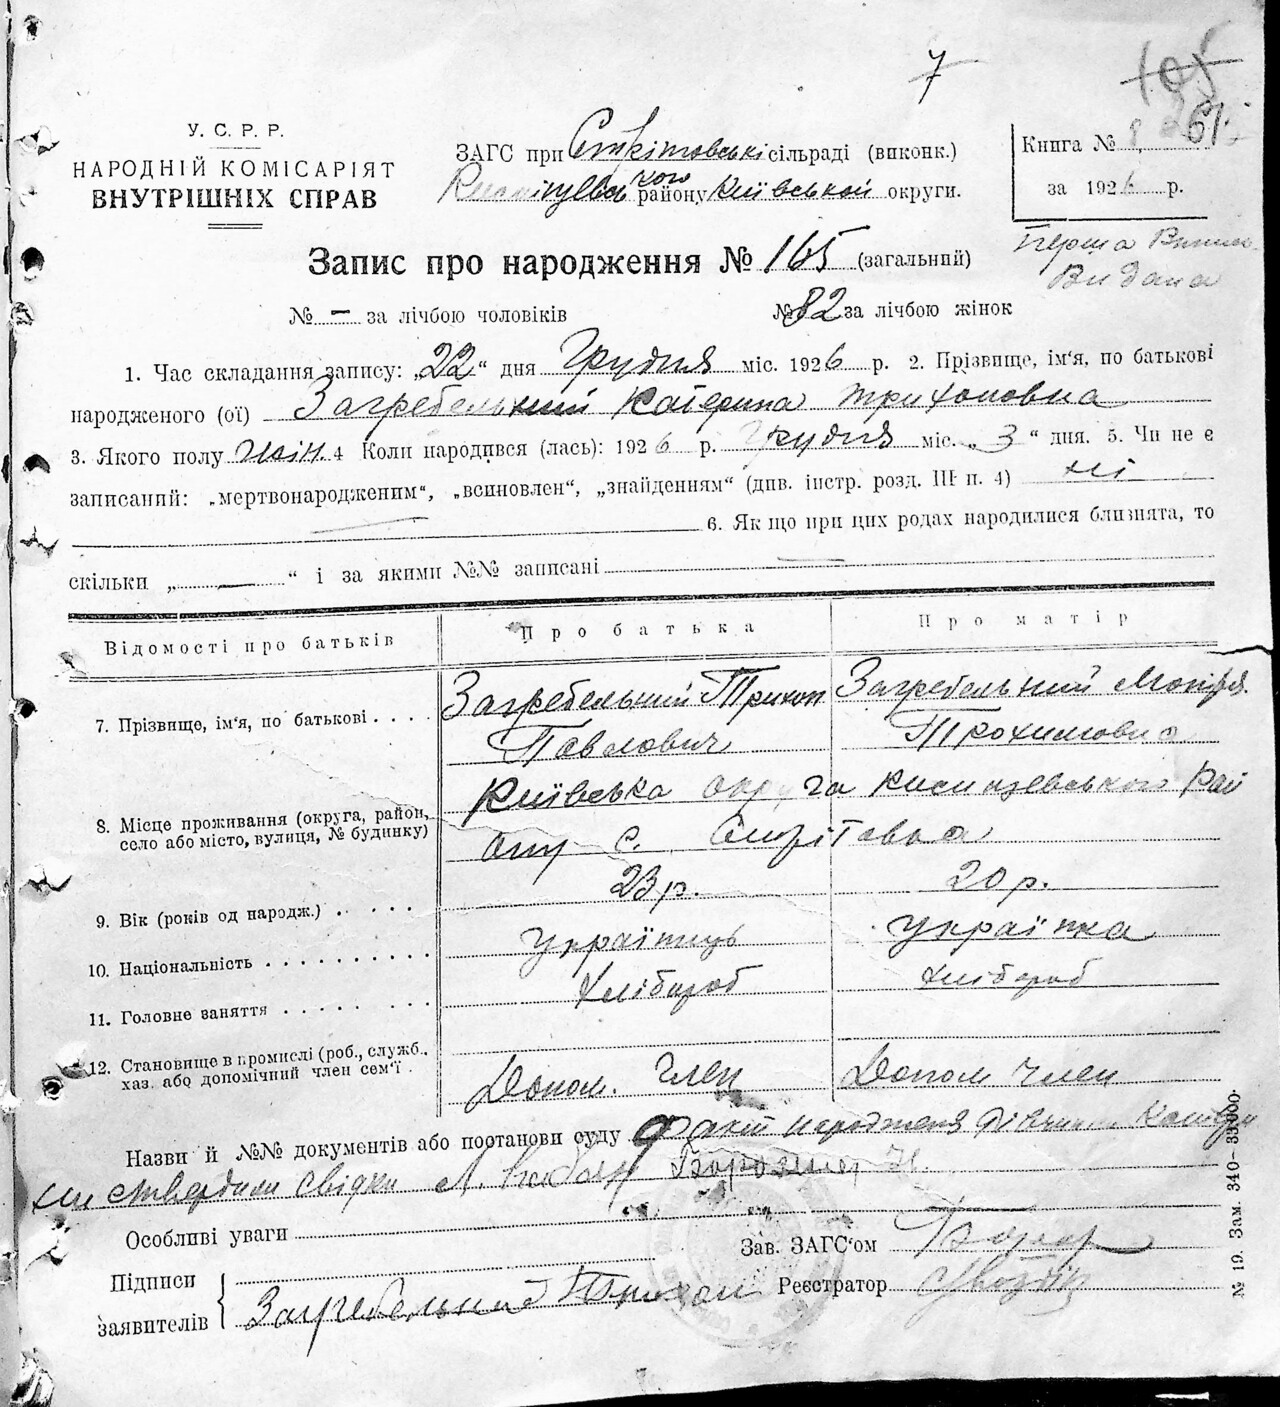 7
61
У. С. Р. Р.
НАРОДНІЙ КОМІСАРІЯТ
ВНУТРІШНІХ СПРАВ
ЗАГС при сільраді (виконк.)
району Київської округи.
Книга № 8
за 1926 р.
Перша Виписка
Видана
Запис про народження № 165 (загальний)
№ — за лічбою чоловіків № 82 за лічбою жінок
1. Час складання запису: „22“ дня Грудня міс. 1926 р. 2. Прізвище, ім‘я, по батькові
народженого (ої) Загребельний Катерина Трихоновна
3. Якого полу жін. 4 Коли народився (лась): 1926 р. Грудня міс. „3“ дня. 5. Чи не є
записаний: „мертвонародженим“, „всиновлен“, „знайденням“ (див. інстр. розд. III п. 4) ні
6. Як що при цих родах народилися близнята, то
скільки „ — “ і за якими №№ записані —
Відомості про батьків Про батька Про матір
7. Прізвище, ім‘я, по батькові . . . . Загребельний Трихон Загребельний
Павлович Трохимовна
8. Місце проживання (округа, район, село або місто, вулиця, № будинку) Київська округа Рай
ону с.
9. Вік (років од народж.) . . . . . 23 р. 20 р.
10. Національність . . . . . . . . . . Українець Українка
11. Головне заняття . . . . . . . Хлібороб Хлібороб
12. Становище в промислі (роб., служб., хаз. або допомічний член сем‘ї . Допом. Член Допом Член
Назви й №№ документів або постанови суду Факт народженя дівчини
ствердили свідки
Особливі уваги
Зав. ЗАГС‘ом
Підписи
заявителів Загребельний Трихон
Реєстратор
№ 19. Зам. 340—35.000.